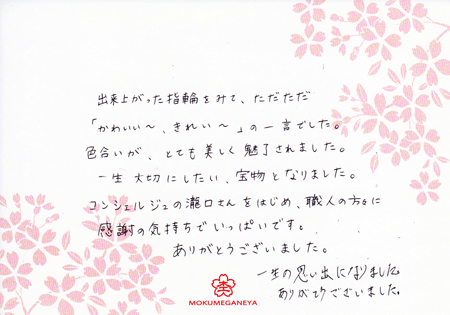 出来上がった指輪をみて、ただただ
「かわいい〜、きれい〜」の一言でした。
色合いが、とても美しく魅了されました。
一生大切にしたい、宝物となりました。
コンシェルジュの瀧口さんをはじめ、職人の方々に
感謝の気持ちでいっぱいです。
ありがとうございました。
一生の思い出になりました。
ありがとうございました。
MOKUMEGANEYA